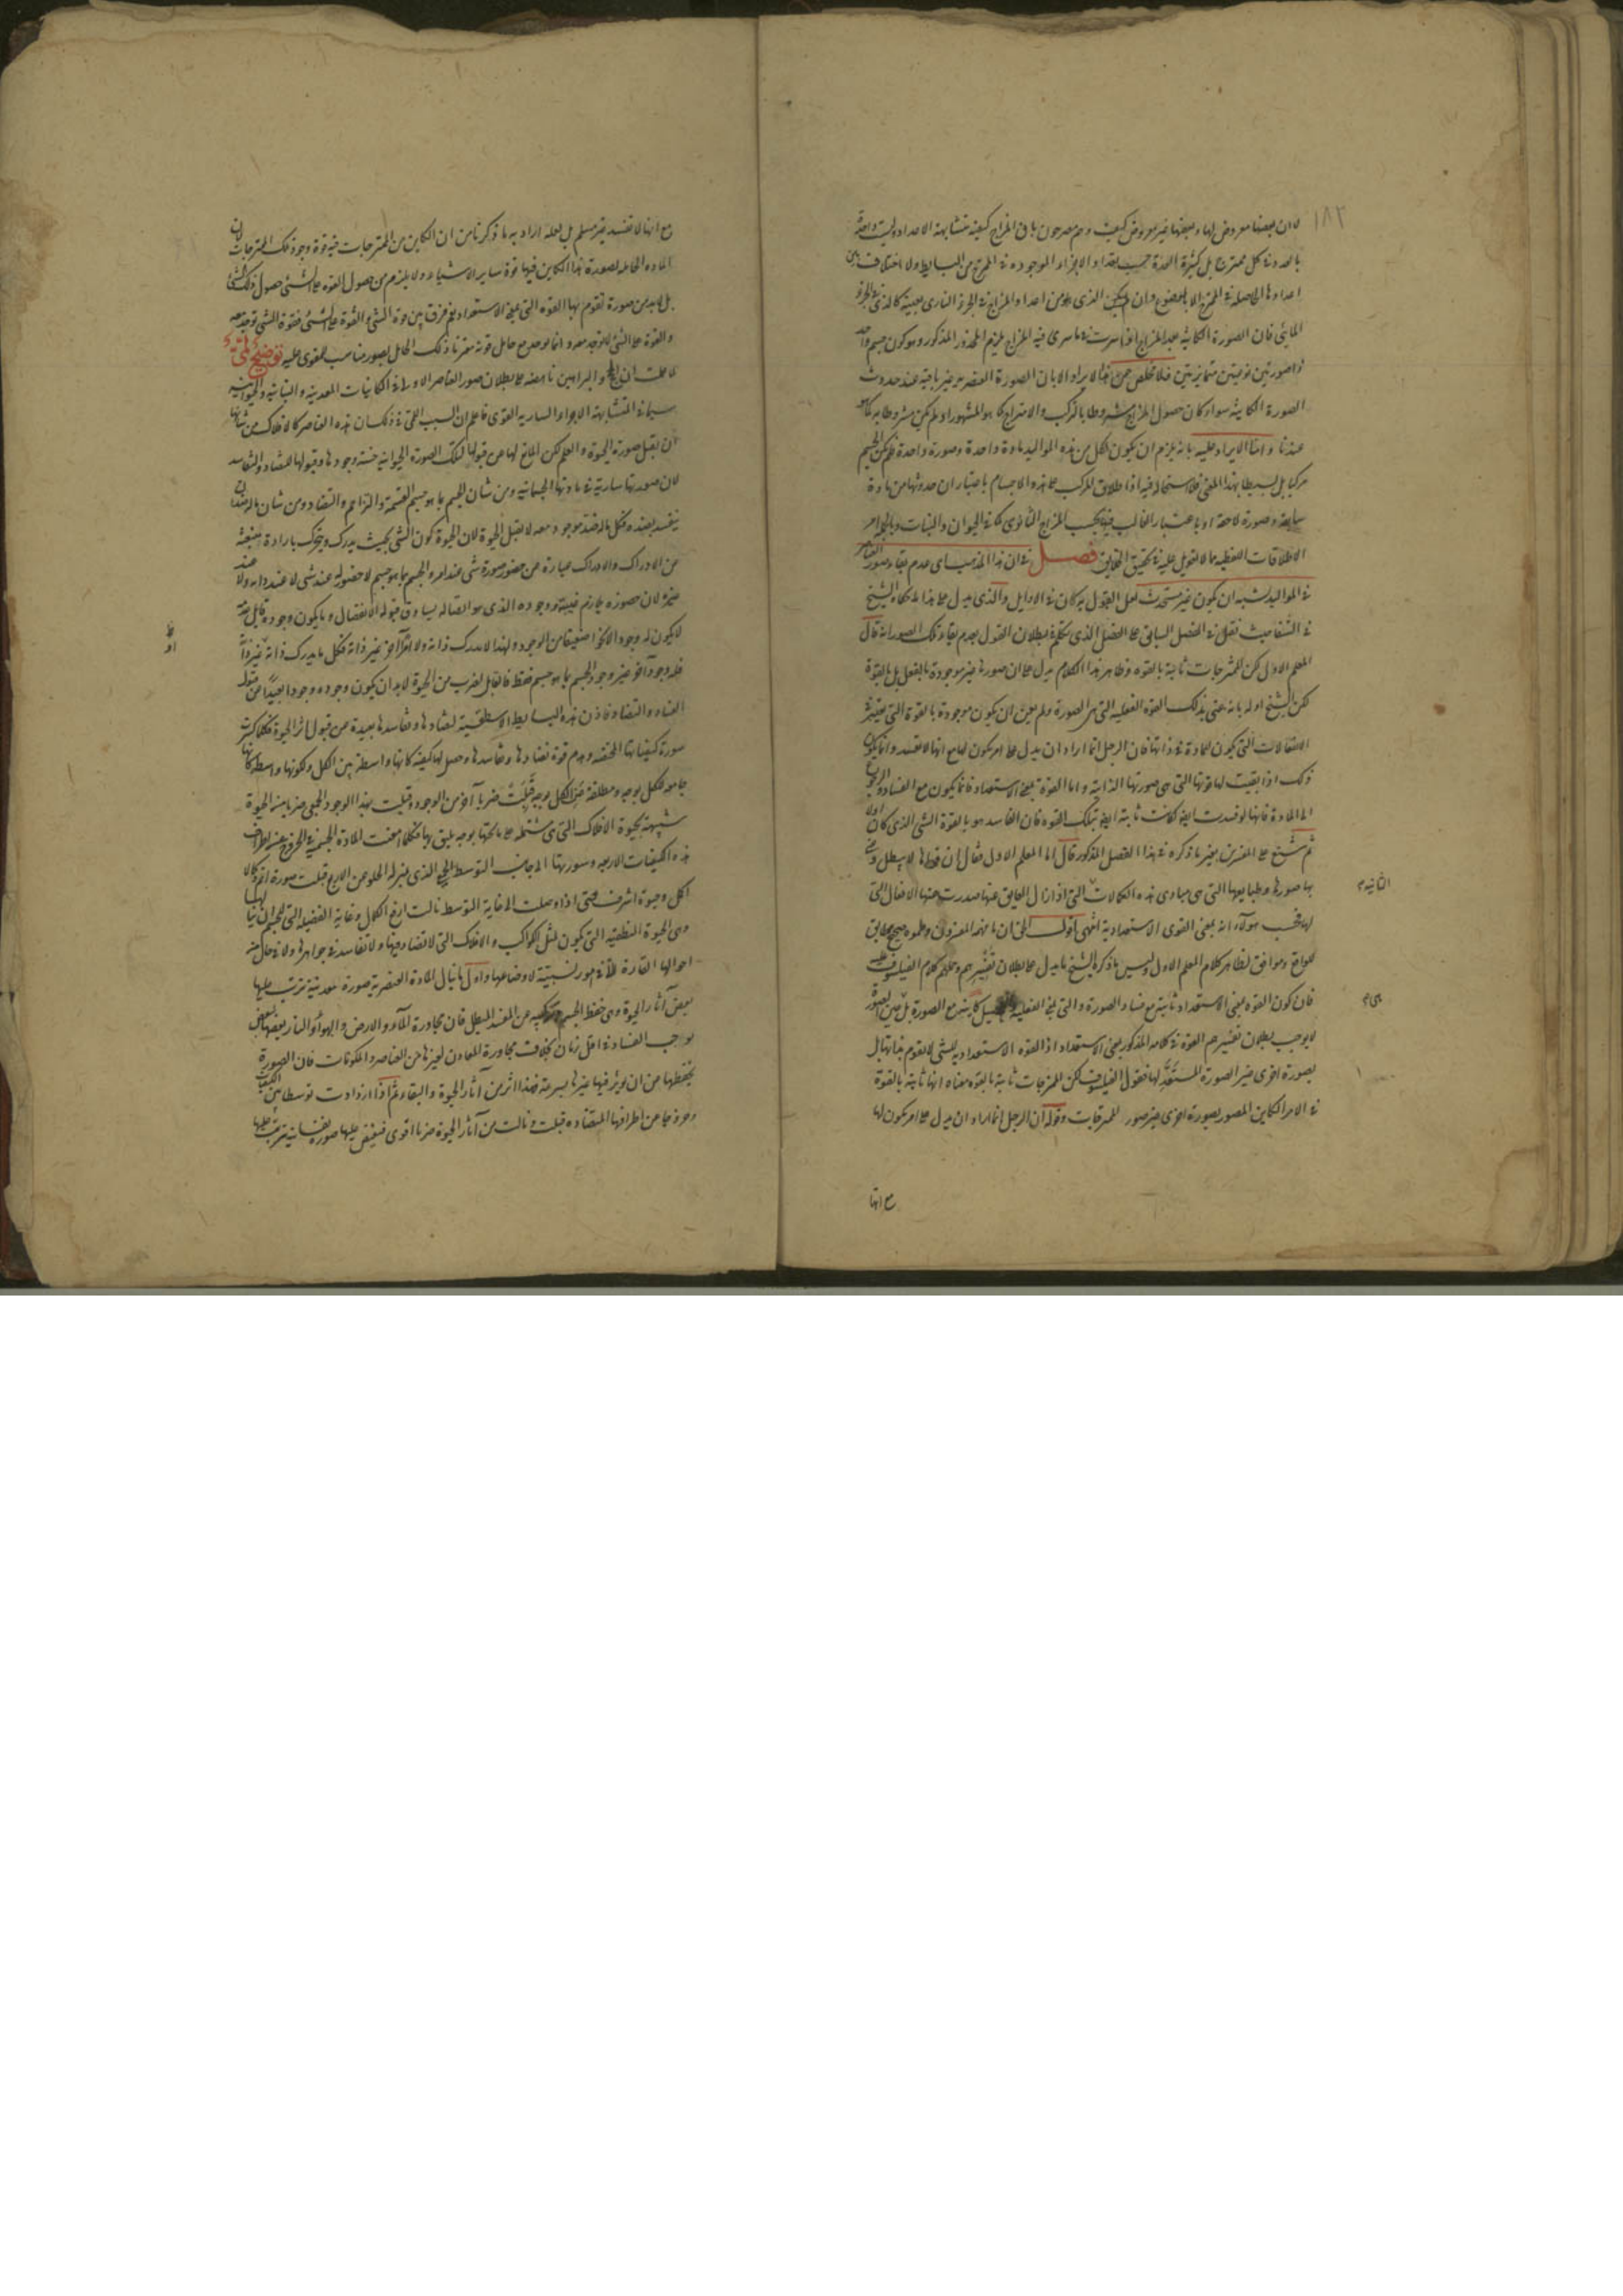 ١٨٢
لان بعضها معروض لها وبعضها غير معروض كيف وهم مصرحون بان المزاج كيفية متشابهة الاعداد وليست واحدة
بالعدد في كل ممتزج بل كثيرة العدة حسب تعداد الاجزاء الموجودة في الممتزج من البسايط ولا اختلاف بين
اعدادها الحاصلة في الممتزج الا بالموضوع وان الذى هو من اعداد المزاج في الجزء النارى بعينه كالذى في الجزء
المائى فان الصورة الكاينة بعد المزاج اذا سرت في ما سرى فيه المزاج يلزم المحذور المذكور وهو كون جسم واحد
ذا صورتين نوعيتين متمايزتين فلا مخلص عن هذا الايراد الا بان الصورة العنصرية غير باقية عند حدوث
الصورة الكاينة سواء كان حصول المزاج مشروطا بالتركب والامتزاج كما هو المشهور او لم يكن مشروطا به كما هو
عندنا واما الايراد عليه بانه يلزم ان يكون لكل من هذه المواليد مادة واحدة وصورة واحدة فلم يكن الجسم
مركبا بل بسيطا بهذا المعنى فلا استحالة فيه اذ اطلاق المركب على هذه الاجسام باعتبار ان حدوثها من مادة
سابقة وصورة لاحقة او باعتبار الغالب فيها بحسب المزاج الثانوى كما في الحيوان والنبات وبالجملة امر
الاطلاقات اللفظية مما لا تعويل عليه في تحقيق الحقايق فصل في ان هذا المذهب اى عدم بقاء صور العناصر
في المواليد يشبه ان يكون غير مستحدث لعل القول به كان في الاوايل والذى يدل على هذا ما حكاه الشيخ
في الشفا حيث نقل في الفصل السابق على الفصل الذى تكلم في بطلان القول بعدم بقاء تلك الصور انه قال
المعلم الاول لكن الممتزجات ثابتة بالقوة وظاهر هذا الكلام يدل على ان صورها غير موجودة بالفعل بل بالقوة
لكن الشيخ اوله بانه عنى بذلك القوة الفعلية التى هى الصورة ولم يعن ان يكون موجودة بالقوة التى يعتبر في
الانفعالات التى يكون للمادة في ذاتها فان الرجل انما اراد ان يدل على امر يكون لها مع انها لا تفسد وانما يكون
ذلك اذا بقيت لها قوتها التى هى صورتها الذاتية واما القوة بمعنى الاستعداد فانما يكون مع الفساد والرجوع
الى المادة فانها لو فسدت ايضا لكانت ثابتة ايضا بتلك القوة فان الفاسد هو بالقوة الشىء الذى كان اولا
ثم شنع على المفسرين بغير ما ذكره في هذا الفصل المذكور قال اما المعلم الاول فقال ان قواها لا يبطل وعنى
بها صورها وطبايعها التى هى مبادى هذه الكمالات التى اذا زال العايق عنها صدرت عنها الافعال التى
لها فحسب هؤلاء انه يعنى القوى الاستعدادية انتهى اقول الحق ان ما فهمه المفسرون وحملوه صحيح مطابق
للواقع وموافق لظاهر كلام المعلم الاول وليس ما ذكره الشيخ مما يدل على بطلان تفسيرهم وحملهم كلام الفيلسوف عليه
فان كون القوة بمعنى الاستعداد ثابتة مع فساد الصورة والتى بمعنى الفعلية كاينة مع الصورة بل هى عين الصورة
لا يوجب بطلان تفسيرهم القوة في كلامه المذكور بمعنى الاستعداد اذ القوة الاستعدادية للشىء لا تقوم بذاتها بل
بصورة اخرى غير الصورة المستعد لها فقول الفيلسوف لكن الممتزجات ثابتة بالقوة معناه انها ثابتة بالقوة
في الامر الكاين المصور بصورة اخرى غير صور الممتزجات وقوله ان الرجل انما اراد ان يدل على امر يكون لها
الثانية
هى
مع انها
مع انها لا تفسد غير مسلم بل لعله اراد به ما ذكرنا من ان الكاين من الممتزجات فيه قوة وجود تلك الممتزجات لان
المادة الحاملة لصورة هذا الكاين فيها قوة ساير الاشياء ولا يلزم من حصول القوة على الشىء حصول ذلك الشىء
بل لابد من صورة تقوم بها القوة التى بمعنى الاستعداد نعم فرق بين قوة الشىء والقوة على الشىء فقوة الشىء توجد معه
والقوة على الشىء لا توجد معه وانما يوجد مع حامل قوته مقترنا ذلك الحامل بصورة مناسبة للمقوى عليه توضيح
لما علمت ان والبراهين ناهضة على بطلان صور العناصر الاولى في الكاينات المعدنية والنباتية والحيوانية
سيما في المتشابهة الاجزاء السارية القوى فاعلم ان السبب اللمى في ذلك ان هذه العناصر كالافلاك من شانها
ان يقبل صورة الحيوة والعلم لكن المانع لها عن قبولها لتلك الصورة الحيوانية خسة وجودها وقبولها للتضاد والتفاسد
لان صورتها سارية في مادتها الجسمانية ومن شان الجسم بما هو جسم القسمة والتزاحم والتضاد ومن شان ما له ضد ان
يفسد بضده فكل ما له ضد موجود معه لا يقبل الحيوة لان الحيوة كون الشىء بحيث يدرك ويتحرك بارادة منبعثة
عن الادراك والادراك عبارة عن حضور صورة شىء عند امر والجسم بما هو جسم لا حضور له عند شىء لا عند ذاته ولا عند
غيره لان حضوره يلازم غيبته ووجوده الذى هو اتصاله يساوق قبوله الانفصال وما يكون وجوده قابل ضده
لا يكون له وجود الا نحوا ضعيفا من الوجود ولهذا لا يدرك ذاته ولا امرا آخر غير ذاته فكل ما يدرك ذاته او غير ذاته
فله وجود آخر غير وجود الجسم بما هو جسم فقط فالقابل لضرب من الحيوة لابد ان يكون وجوده وجودا بعيدا من قبول
الفساد والتضاد فاذن هذه البسايط الاسطقسية لتضادها وتفاسدها بعيدة من قبول اثر الحيوة فكلما كسرت
سورة كيفياتها المختلفة وهدم قوة تضادها وتفاسدها وحصل لها كيفية كانها واسطة بين الكل ولكونها واسطة كانها
جامعة للكل بوجه ومطلقة عن الكل بوجه قبلت ضربا آخر من الوجود وقبلت بهذا الوجود الجمعى ضربا من الحيوة
شبيهة بحيوة الافلاك التى هى مشتملة على ما تحتها بوجه يليق بها فكلما امعنت المادة الجسمية في الخروج عن اطراف
هذه الكيفيات الاربعة وسورتها الى جانب التوسط الجمعى الذى بمنزلة الخلو عن الاربع قبلت صورة اتم وكمالا
اكمل وحيوة اشرف حتى اذا وصلت الى غاية التوسط نالت ارفع الكمال وغاية الفضيلة التى للجسم ان ينالها
وهى الحيوة النطقية التى يكون لمثل الكواكب والافلاك التى لا تضاد فيها ولا تفاسد في جواهرها ولا في حال من
احوالها القارة الا في امور نسبية لاوضاعها واول ما ينال المادة العنصرية صورة معدنية ترتب عليها
بعض آثار الحيوة وهى حفظ الجسم وتركيبه عن المفسد المبطل فان مجاورة الماء والارض والهواء والنار بعضها لبعض
يوجب الفساد في اقل زمان بخلاف مجاورة المعادن لغيرها من العناصر والمكونات فان الصورة
تحفظها من ان يؤثر فيها غيرها بسرعة فهذا اثر من آثار الحيوة والبقاء ثم اذا ازدادت توسطا بين الكيفيات
وخروجا عن اطرافها المتضادة قبلت ونالت من آثار الحيوة ضربا اقوى فيفيض عليها صورة نفسانية يترتب عليها